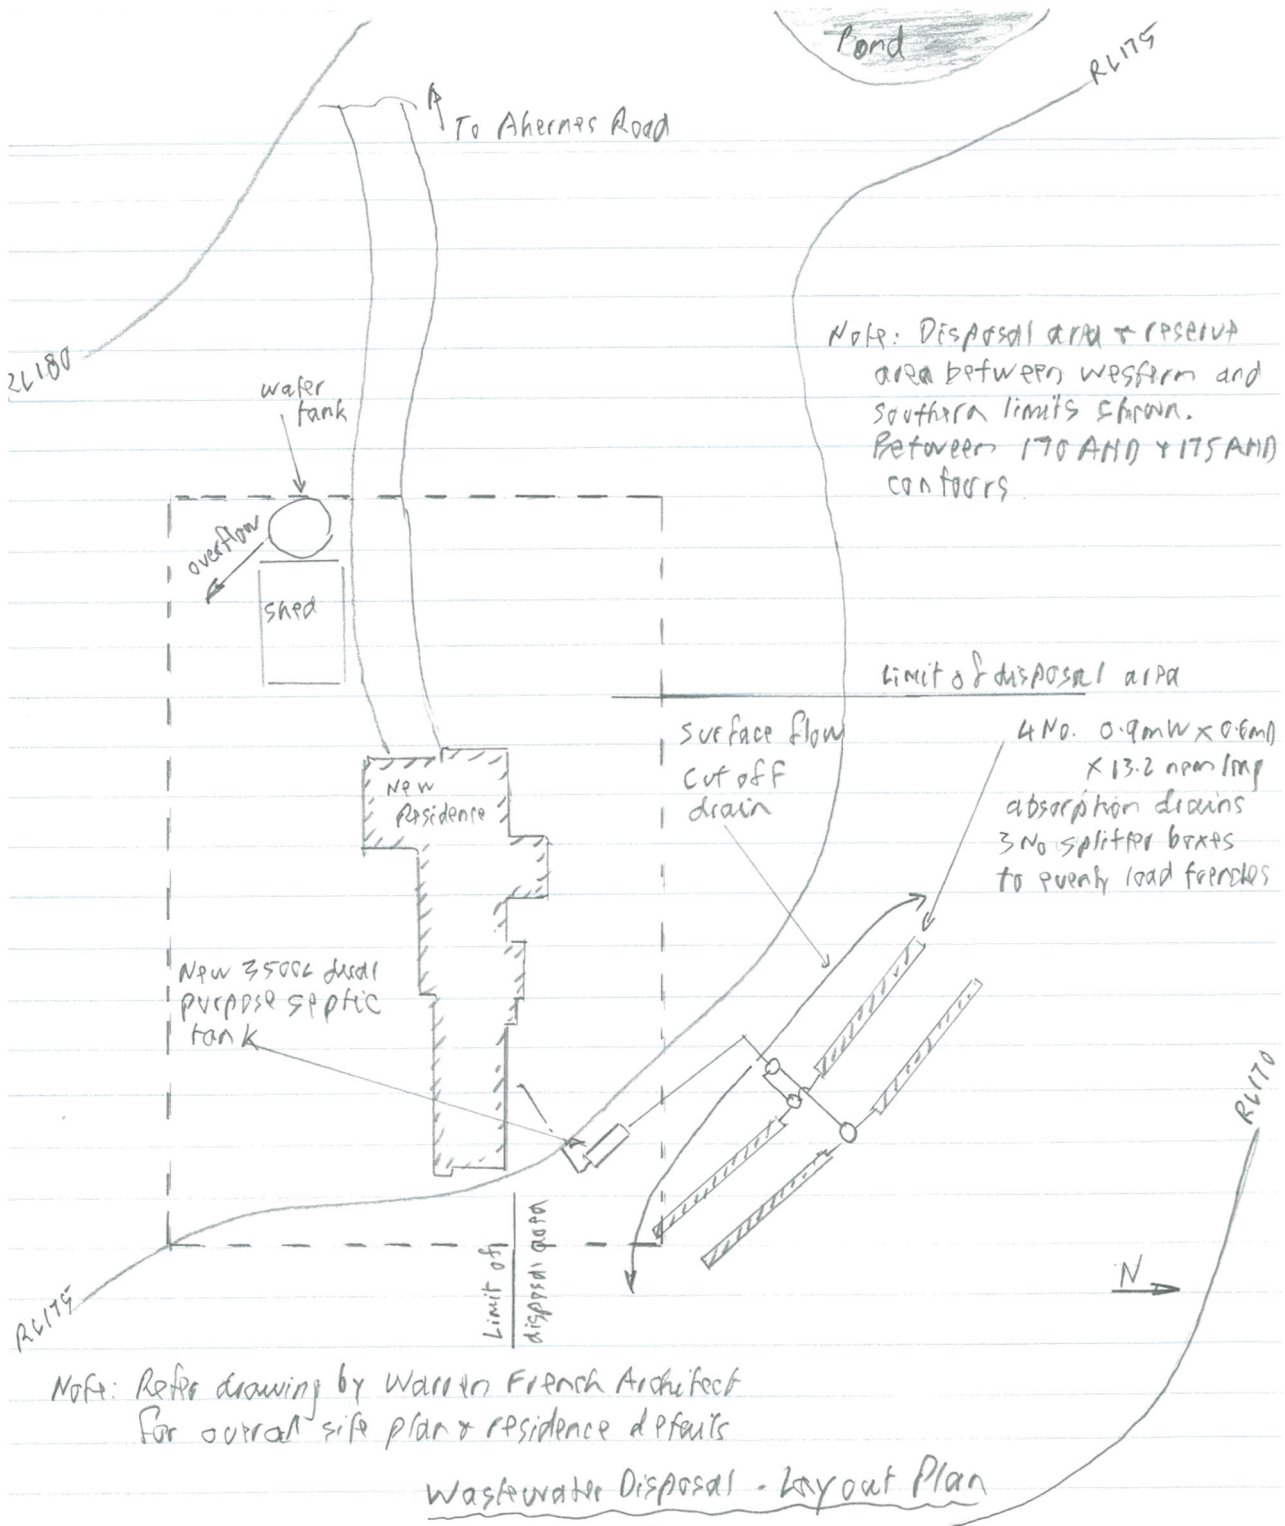 Pond
RL175
To Ahernes Road
RL180
Note: Disposal area & reserve
area between western and
southern limits shown.
Between 170 AHD & 175 AHD
contours
water
tank
overflow
shed
Limit of disposal area
surface flow
cut off
drain
4 No. 0.9mW x 0.6mD
x 13.2 long
absorption drains
3 No splitter boxes
to evenly load trenches
New
Residence
New 3500L dual
purpose septic
tank
RL170
Limit of
disposal area
N
RL175
Note: Refer drawing by Warren French Architect
for overall site plan & residence details
Wastewater Disposal - Layout Plan